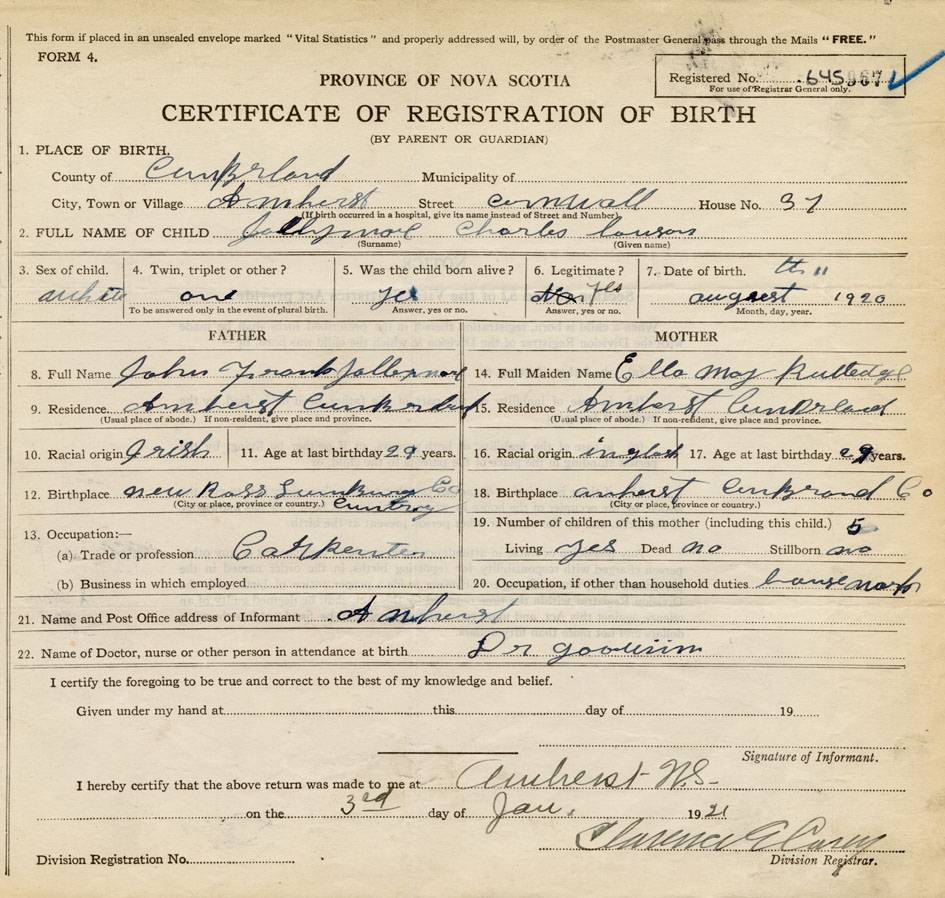 This form if placed in an unsealed envelope marked "Vital Statistics" and properly addressed will, by order of the Postmaster General pass through the Mails "FREE."
FORM 4.
PROVINCE OF NOVA SCOTIA
Registered No. 645967
For use of Registrar General only.
CERTIFICATE OF REGISTRATION OF BIRTH
(BY PARENT OR GUARDIAN)
1. PLACE OF BIRTH.
County of CumBrland Municipality of
City, Town or Village Amherst Street cornwall House No. 37
(If birth occurred in a hospital, give its name instead of Street and Number)
2. FULL NAME OF CHILD Jollymore Charles
(Surname) (Given name)
3. Sex of child. 4. Twin, triplet or other? 5. Was the child born alive? 6. Legitimate? yes 7. Date of birth. th 11
white one yes august 1920
To be answered only in the event of plural birth. Answer, yes or no. Answer, yes or no. Month, day, year.
FATHER MOTHER
8. Full Name John Frank Jollymore 14. Full Maiden Name Ella May Rutledge
9. Residence Amherst 15. Residence Amherst CumBrland
(Usual place of abode.) If non-resident, give place and province. (Usual place of abode.) If non-resident, give place and province.
10. Racial origin Irish 11. Age at last birthday 29 years. 16. Racial origin inglish 17. Age at last birthday 29 years.
12. Birthplace new Ross Co 18. Birthplace amherst Co
(City or place, province or country.) (City or place, province or country.)
19. Number of children of this mother (including this child.) 5
13. Occupation:—
(a) Trade or profession Carpenter Living yes Dead no Stillborn no
(b) Business in which employed 20. Occupation, if other than household duties housework
21. Name and Post Office address of Informant Amherst
22. Name of Doctor, nurse or other person in attendance at birth Dr
I certify the foregoing to be true and correct to the best of my knowledge and belief.
Given under my hand at this day of 19
Signature of Informant.
I hereby certify that the above return was made to me at Amherst N.S.
on the 3rd day of Jan. 1921
Clarence E Casey
Division Registration No. Division Registrar.